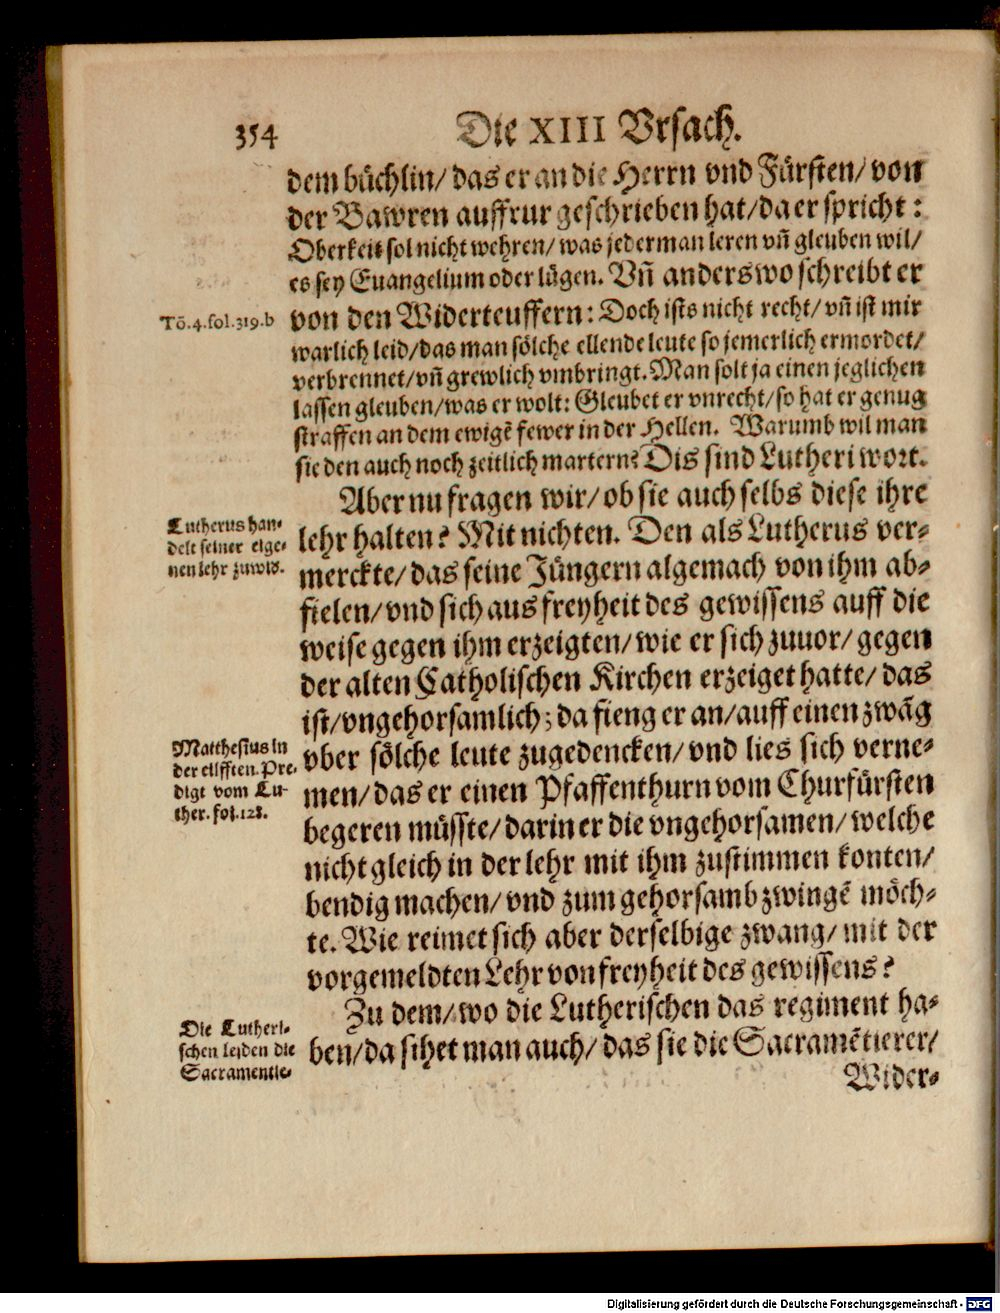 354
Die XIII Vrsach.
dem büchlin/ das er an die Herrn vnd Fürsten/ von
der Bawren auffrur geschrieben hat/ da er spricht:
Oberkeit sol nicht wehren/ was jederman leren vñ gleuben wil/
es sey Euangelium oder lügen. Vñ anderswo schreibt er
Tō.4.fol.319.b
von den Widerteuffern: Doch ists nicht recht/ vñ ist mir
warlich leid/ das man sölche ellende leute so jemerlich ermordet/
verbrennet/ vñ grewlich vmbringt. Man solt ja einen jeglichen
lassen gleuben/ was er wolt: Gleubet er vnrecht/ so hat er genug
straffen an dem ewigē fewer in der Hellen. Warumb wil man
sie den auch noch zeitlich martern? Dis sind Lutheri wort.
Aber nu fragen wir/ ob sie auch selbs diese ihre
Lutherus han-
delt seiner eige-
nen lehr zuwid.
lehr halten? Mit nichten. Den als Lutherus ver-
merckte/ das seine Jüngern algemach von ihm ab-
fielen/ vnd sich aus freyheit des gewissens auff die
weise gegen ihm erzeigten/ wie er sich zuuor/ gegen
der alten Catholischen Kirchen erzeiget hatte/ das
ist/ vngehorsamlich; da fieng er an/ auff einen zwāg
Matthesius in
der eilfften Pre-
digt vom Lu-
ther. fol.128.
vber sölche leute zugedencken/ vnd lies sich verne-
men/ das er einen Pfaffenthurn vom Churfürsten
begeren müsste/ darin er die vngehorsamen/ welche
nicht gleich in der lehr mit ihm zustimmen konten/
bendig machen/ vnd zum gehorsamb zwingē möch-
te. Wie reimet sich aber derselbige zwang/ mit der
vorgemeldten Lehr von freyheit des gewissens?
Zu dem/ wo die Lutherischen das regiment ha-
Die Lutheri-
schen leiden die
Sacramentie-
ben/ da sihet man auch/ das sie die Sacramētierer/
Wider-
Digitalisierung gefördert durch die Deutsche Forschungsgemeinschaft - DFG